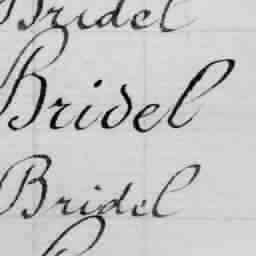 Bridel
Bridel
Bridel